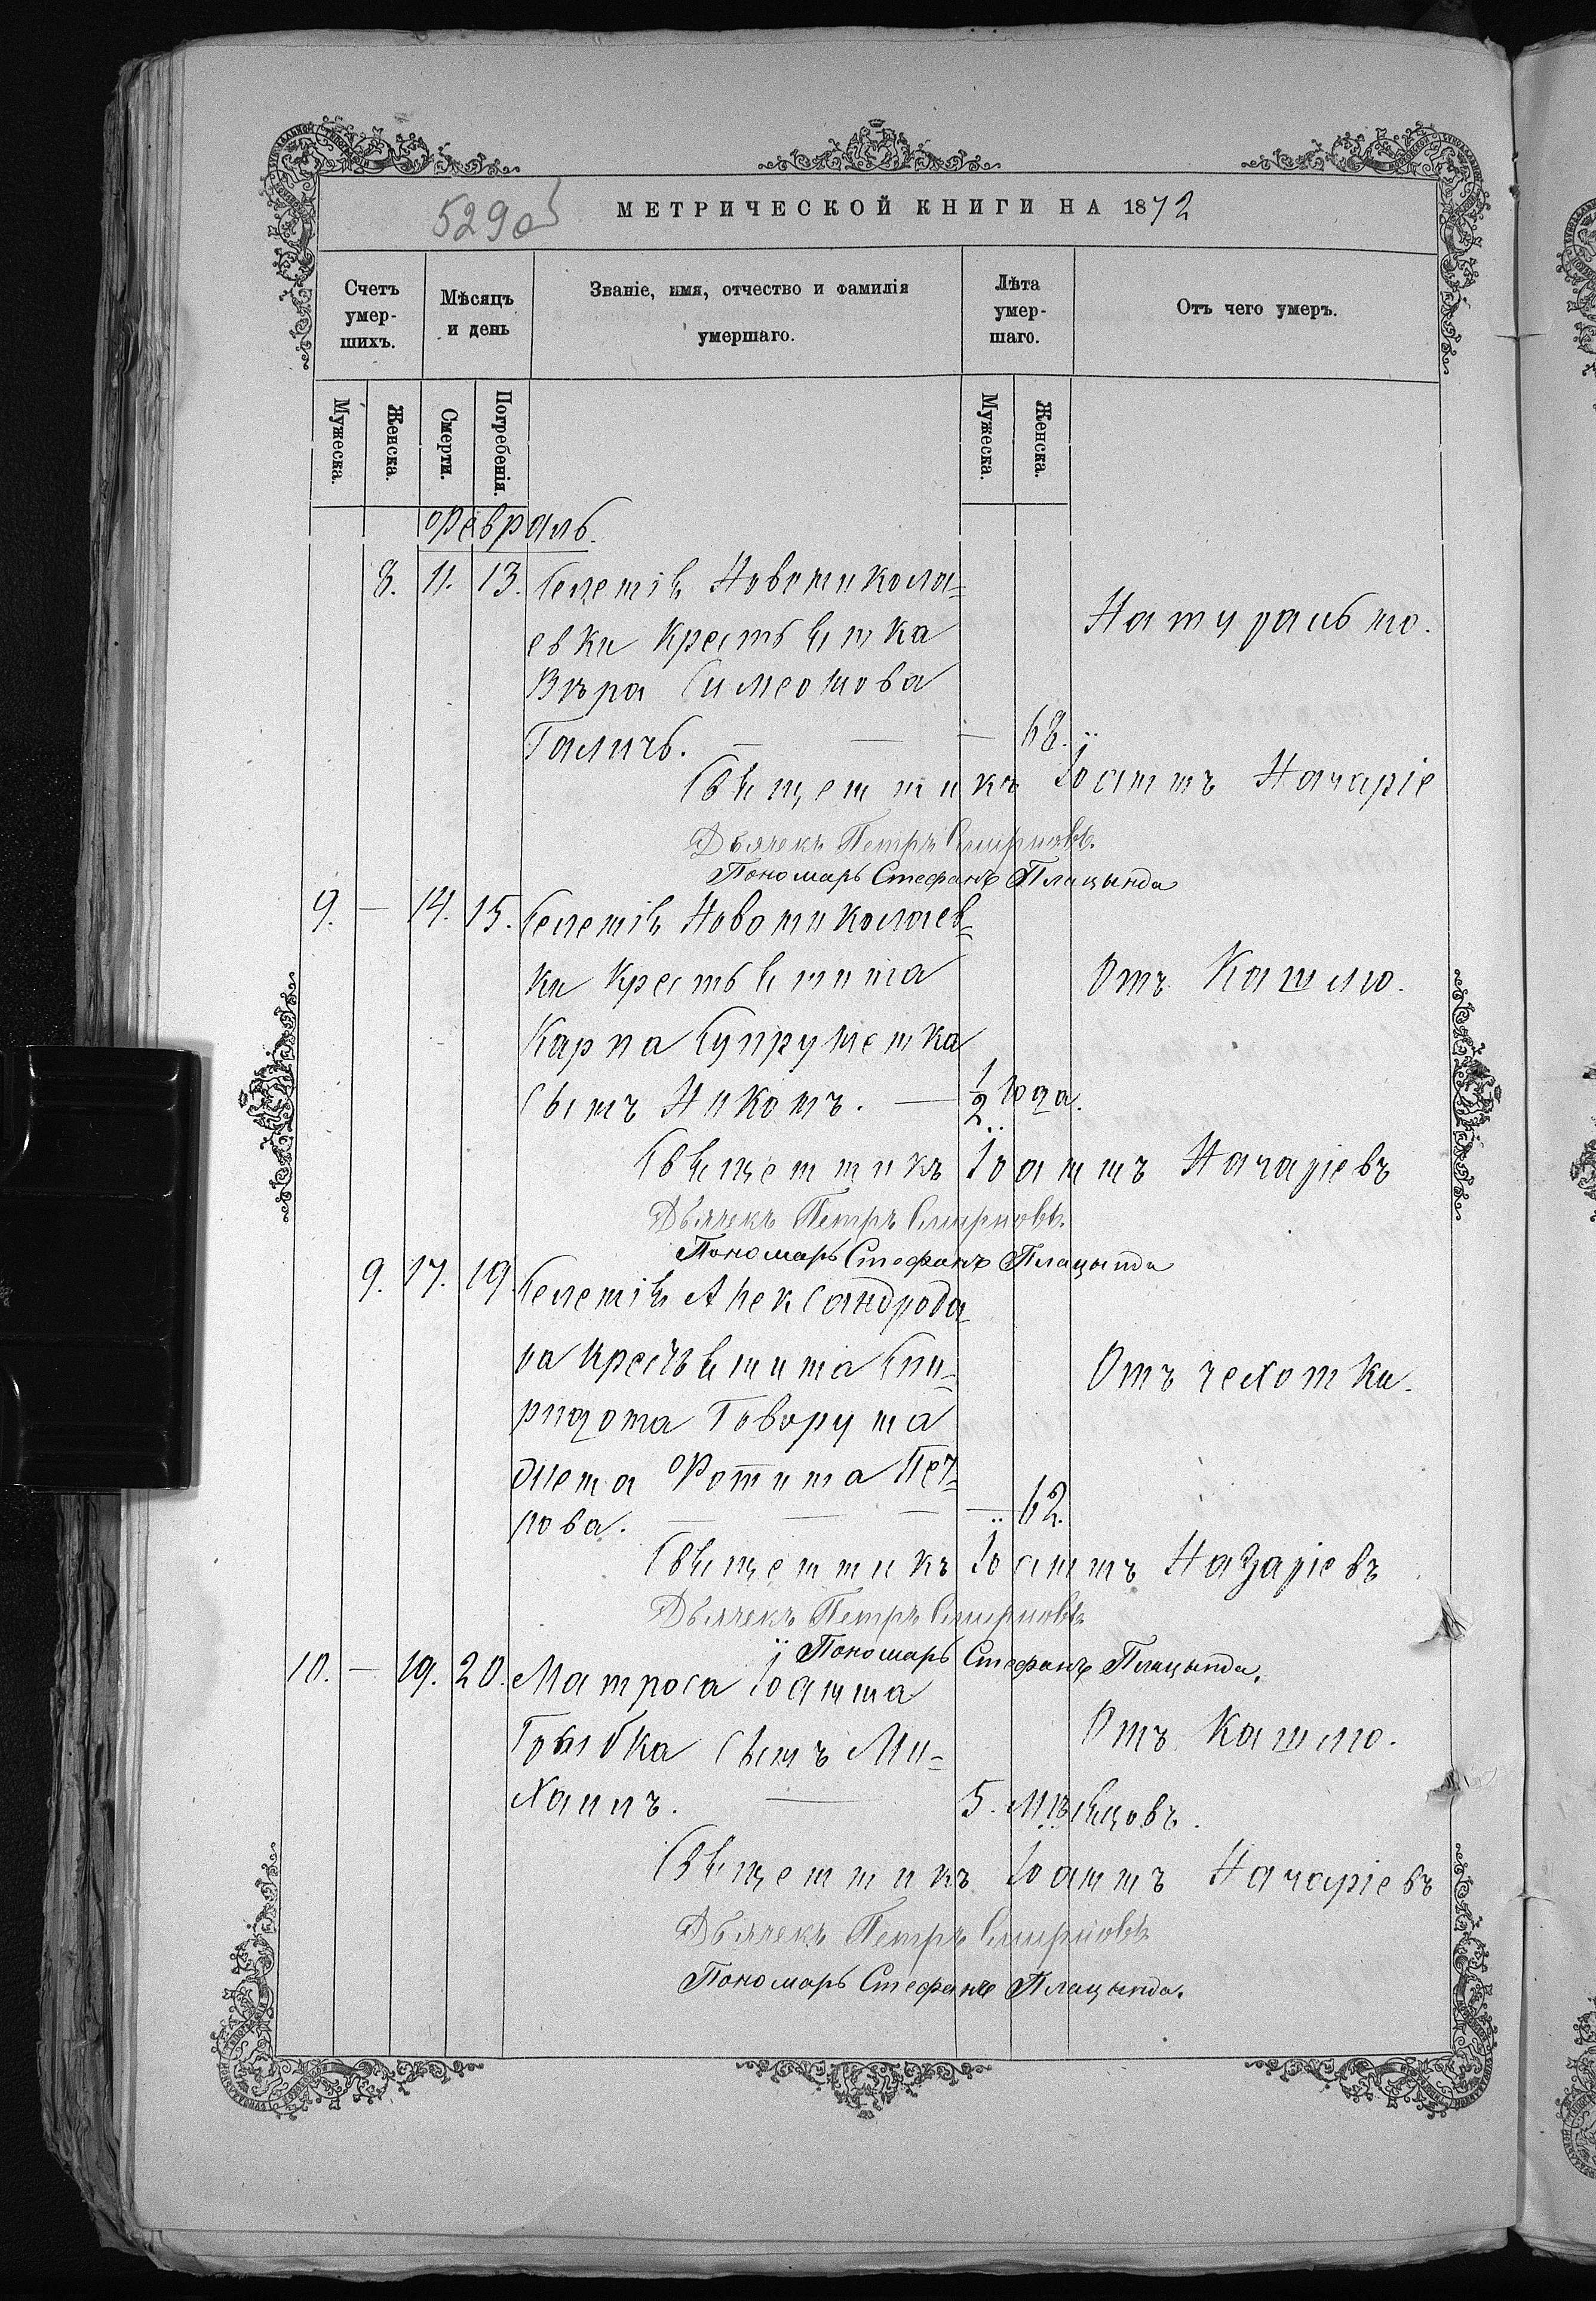 529об
МЕТРИЧЕСКОЙ КНИГИ НА 1872
Счетъ умер-шихъ.
Мѣсяцъ и день
Званіе, имя, отчество и фамилія умершаго.
Лѣта умер-шаго.
Отъ чего умеръ.
Мужеска. Женска. Смерти. Погребенія. Мужеска. Женска.
Февраль.
8. 11. 13. Селенія Новоникола=
евки крестьянка Натурально.
Вѣра Симеонова
Галичъ. — — — 68.
Священникъ Іоаннъ Начаріе
Дьячекъ Петръ Смирновъ.
Пономарь Стефанъ Плацында
9. — 14. 15. Селенія Новониколаев=
ки крестьянина Отъ Кашлю.
Карпа Супруненка
сынъ Никонъ. — 1/2 года.
Священникъ Іоаннъ Начаріевъ
Дьячекъ Петръ Смирновъ.
Пономарь Стефанъ Плацында
9. 17. 19. Селенія Александрода
ра крестьянина Спи= Отъ чехотки.
ридона Говоруна
жена Фотина Пет=
рова. — — — — 62.
Священникъ Іоаннъ Назаріевъ
Дьячекъ Петръ Смирновъ
Пономарь Стефанъ Плацында.
10. — 19. 20. Матроса Іоанна
сынъ Ми= Отъ Кашлю.
хаилъ. — 5. мѣсяцовъ.
Священникъ Іоаннъ Начаріевъ
Дьячекъ Петръ Смирновъ
Пономарь Стефанъ Плацында.